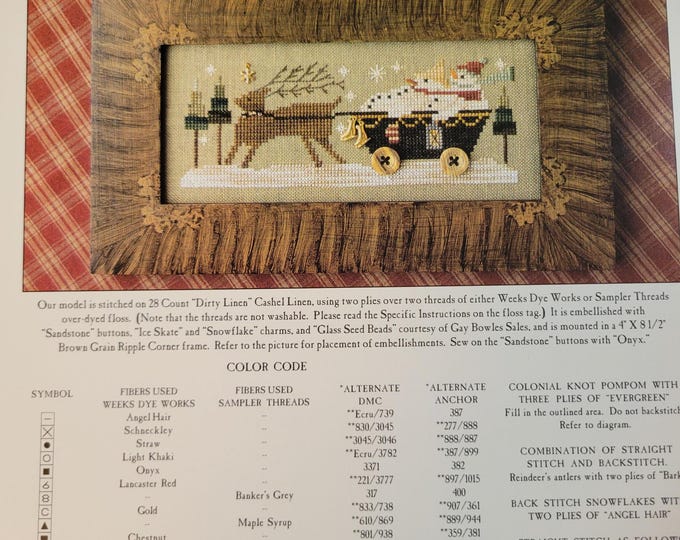 Our model is stitched on 28 Count "Dirty Linen" Cashel Linen, using two plies over two threads of either Weeks Dye Works or Sampler Threads
over-dyed floss. (Note that the threads are not washable. Please read the Specific Instructions on the floss tag.) It is embellished with
"Sandstone" buttons, "Ice Skate" and "Snowflake" charms, and "Glass Seed Beads" courtesy of Gay Bowles Sales, and is mounted in a 4" X 8 1/2"
Brown Grain Ripple Corner frame. Refer to the picture for placement of embellishments. Sew on the "Sandstone" buttons with "Onyx."
COLOR CODE
SYMBOL FIBERS USED FIBERS USED *ALTERNATE *ALTERNATE
WEEKS DYE WORKS SAMPLER THREADS DMC ANCHOR
Angel Hair .. **Ecru/739 387
Schneckley .. **830/3045 **277/888
Straw .. **3045/3046 **888/887
Light Khaki .. **Ecru/3782 **387/899
Onyx .. 3371 382
Lancaster Red .. **221/3777 **897/1015
.. Banker's Grey 317 400
Gold .. **833/738 **907/361
.. Maple Syrup **610/869 **889/944
Chestnut .. **801/938 **359/381
COLONIAL KNOT POMPOM WITH
THREE PLIES OF "EVERGREEN"
Fill in the outlined area. Do not backstitch
Refer to diagram.
COMBINATION OF STRAIGHT
STITCH AND BACKSTITCH.
Reindeer's antlers with two plies of "Bark
BACK STITCH SNOWFLAKES WITH
TWO PLIES OF "ANGEL HAIR"
STRAIGHT STITCH AS FOLLOWS